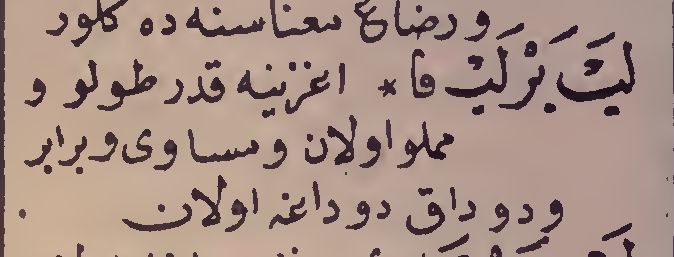 و رضاع معناسنه ده كلور
لَبْ بَرْ لَبْ فا * اغزینه قدر طولو و
مملو اولان و مساوی و برابر
و دوداق دوداغه اولان